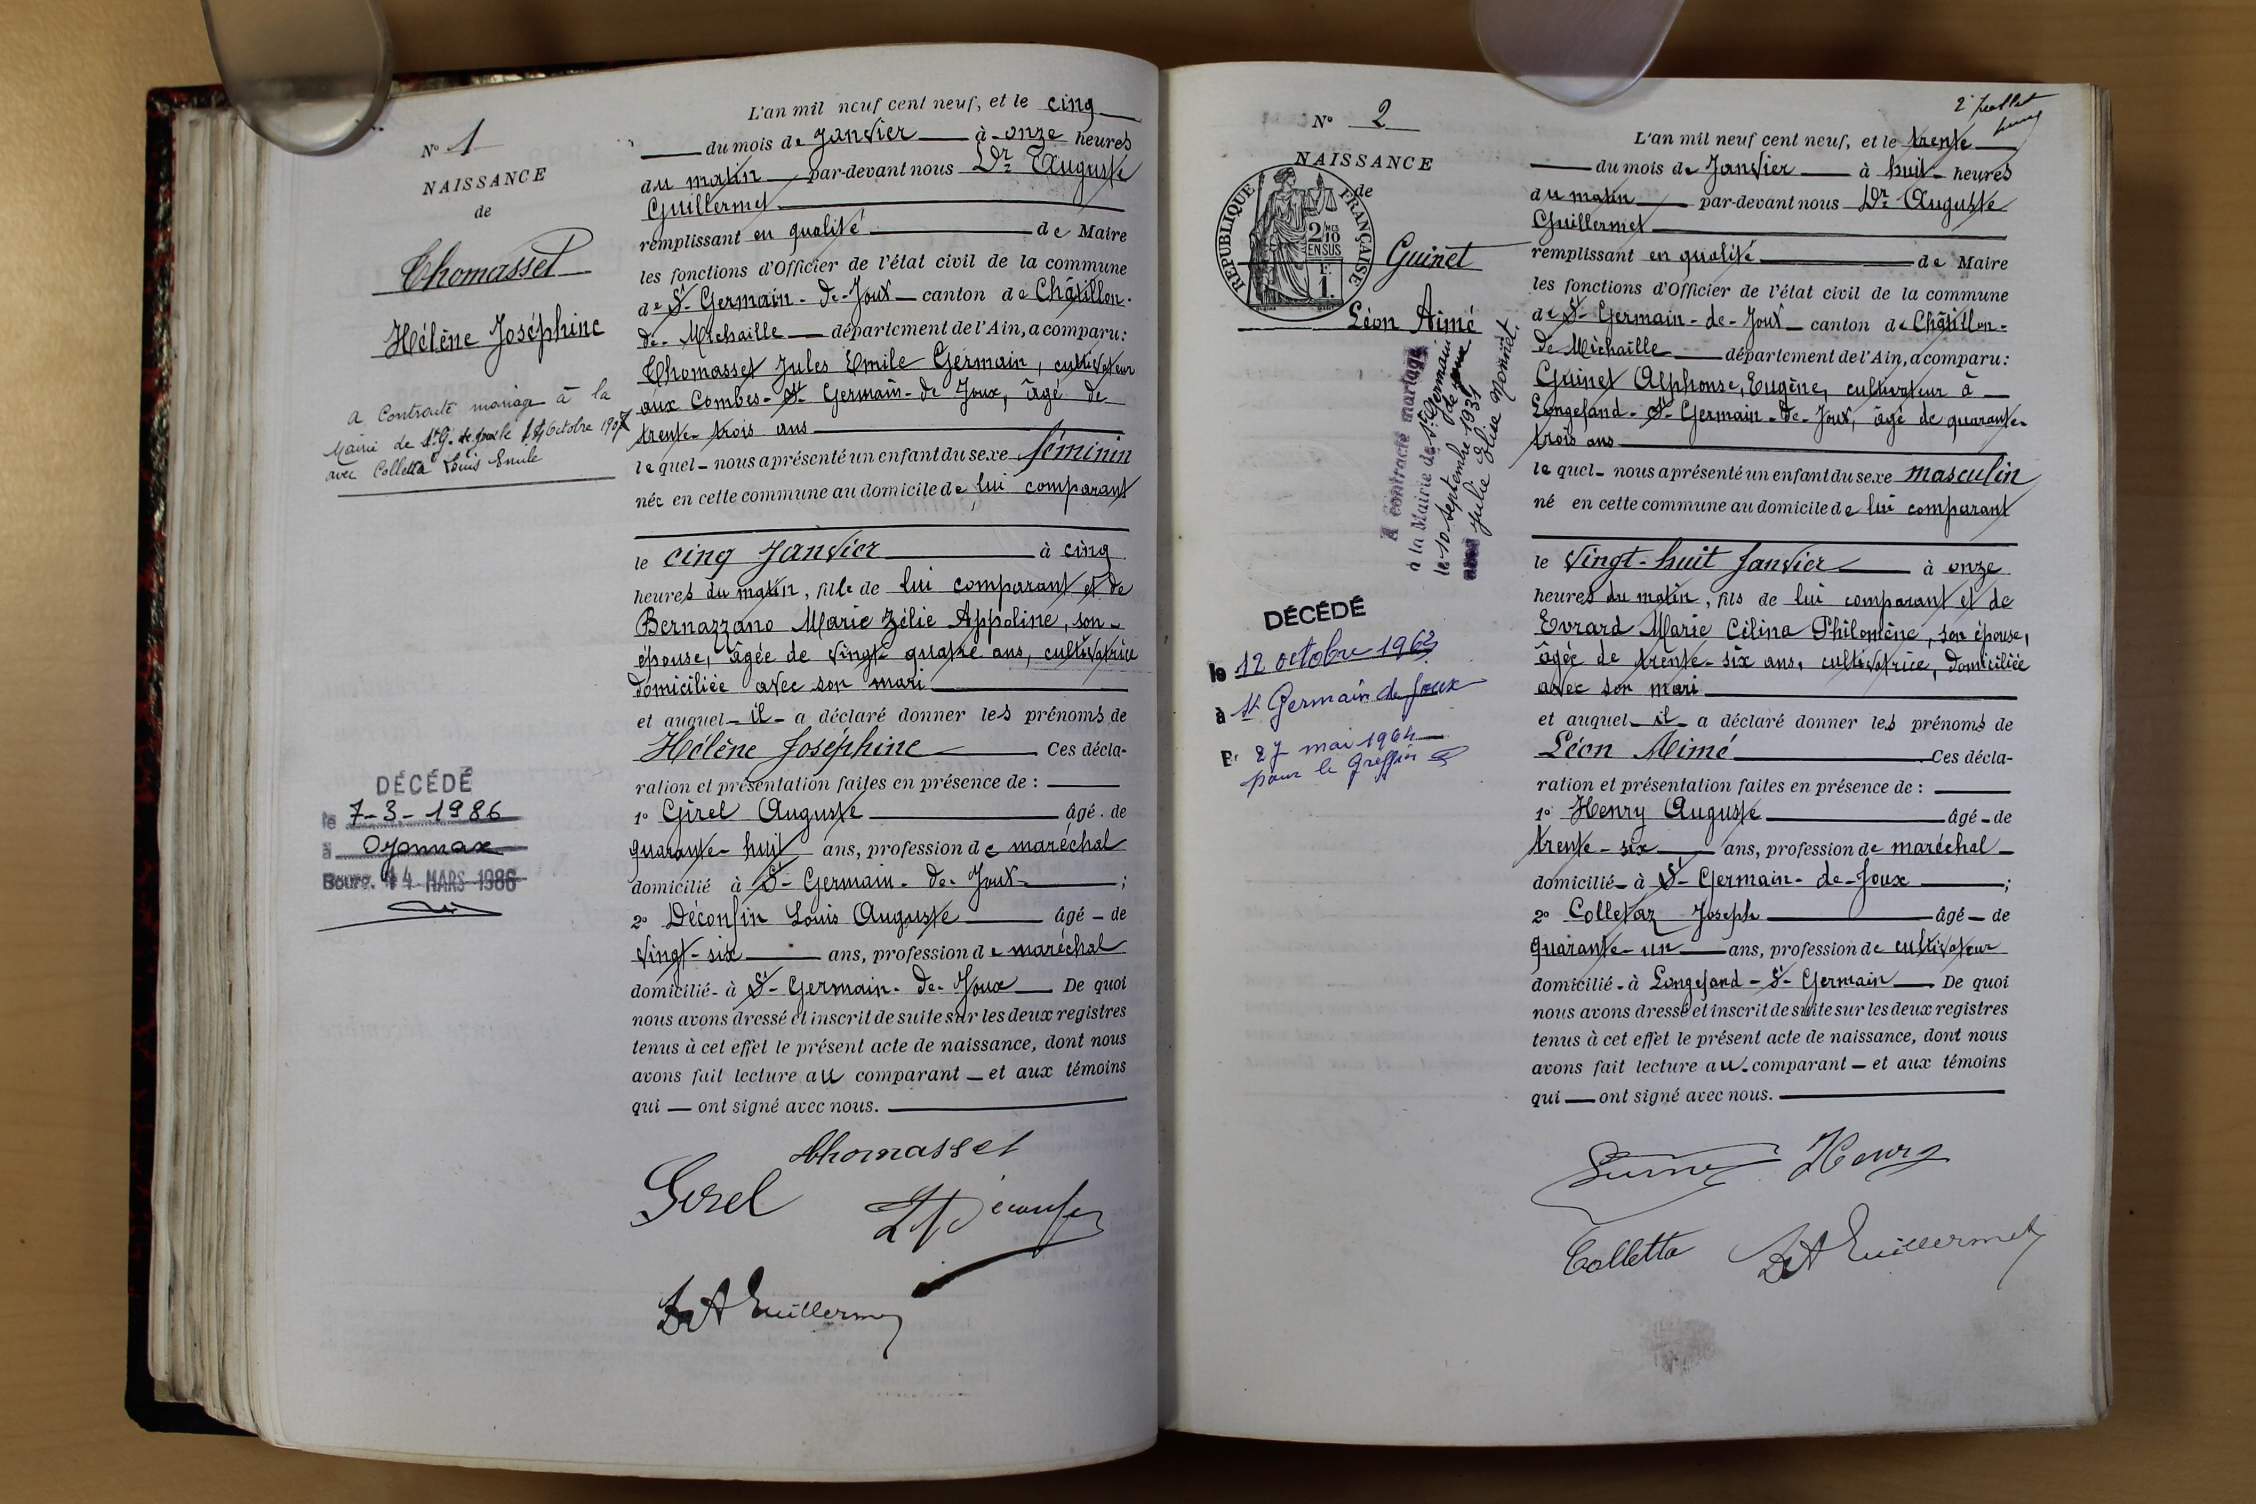 N° 1
NAISSANCE
de
Thomasset
Hélène Joséphine
a Contracté mariage à la
Mairie de St. G. de Joux le Octobre 1927
avec Colletta Louis Emile
DÉCÉDÉ
le 7-3-1986
à Oyonnax
Bourg. 14 MARS 1986
L'an mil neuf cent neuf, et le cinq
du mois de Janvier à onze heures
du matin par-devant nous Dr Auguste
Guillermet
remplissant en qualité de Maire
les fonctions d'Officier de l'état civil de la commune
de St-Germain-de-Joux canton de Châtillon-
de-Michaille département de l'Ain, a comparu:
Thomasset Jules Emile Germain, cultivateur
aux Combes-St-Germain-de Joux, âgé de
trente-trois ans
lequel nous a présenté un enfant du sexe féminin
née en cette commune au domicile de lui comparant
le cinq Janvier à cinq
heures du matin, fille de lui comparant et de
Bernazzano Marie Zélie Appoline, son
épouse, âgée de vingt-quatre ans, cultivatrice
domiciliée avec son mari
et auquel il a déclaré donner les prénoms de
Hélène Joséphine Ces décla-
ration et présentation faites en présence de :
1° Girel Auguste âgé de
quarante-huit ans, profession de maréchal
domicilié à St-Germain-de-Joux ;
2° Déconfin Louis Auguste âgé de
vingt-six ans, profession de maréchal
domicilié à St-Germain-de-Joux De quoi
nous avons dressé et inscrit de suite sur les deux registres
tenus à cet effet le présent acte de naissance, dont nous
avons fait lecture au comparant et aux témoins
qui ont signé avec nous.
Thomasset
Girel
Déconfin
Dr A Guillermet
2e feuillet
N° 2
NAISSANCE
de
REPUBLIQUE FRANÇAISE
2/10 MES
EN SUS
F.
1.
Guinet
Léon Aimé
A contracté mariage
à la Mairie de St Germain de Joux
le 10 septembre 1931
avec Julie Elise Monnet.
DÉCÉDÉ
le 12 octobre 1963
à St Germain de Joux
27 mai 1964
pour le Greffier
L'an mil neuf cent neuf, et le trente
du mois de Janvier à huit heures
du matin par-devant nous Dr Auguste
Guillermet
remplissant en qualité de Maire
les fonctions d'Officier de l'état civil de la commune
de St-Germain-de-Joux canton de Châtillon-
de Michaille département de l'Ain, a comparu:
Guinet Alphonse, Eugène, cultivateur à
Longefand-St-Germain-de-Joux, âgé de quarante-
trois ans
lequel nous a présenté un enfant du sexe masculin
né en cette commune au domicile de lui comparant
le vingt-huit Janvier à onze
heures du matin, fils de lui comparant et de
Evrard Marie Célina Philomène, son épouse,
âgée de trente-six ans, cultivatrice, domiciliée
avec son mari
et auquel il a déclaré donner les prénoms de
Léon Aimé Ces décla-
ration et présentation faites en présence de :
1° Henry Auguste âgé de
trente-six ans, profession de maréchal
domicilié à St-Germain-de-Joux ;
2° Colletaz Joseph âgé de
quarante-un ans, profession de cultivateur
domicilié à Longefand-St-Germain De quoi
nous avons dressé et inscrit de suite sur les deux registres
tenus à cet effet le présent acte de naissance, dont nous
avons fait lecture au comparant et aux témoins
qui ont signé avec nous.
Guinet Henry
Colletta Dr A Guillermet